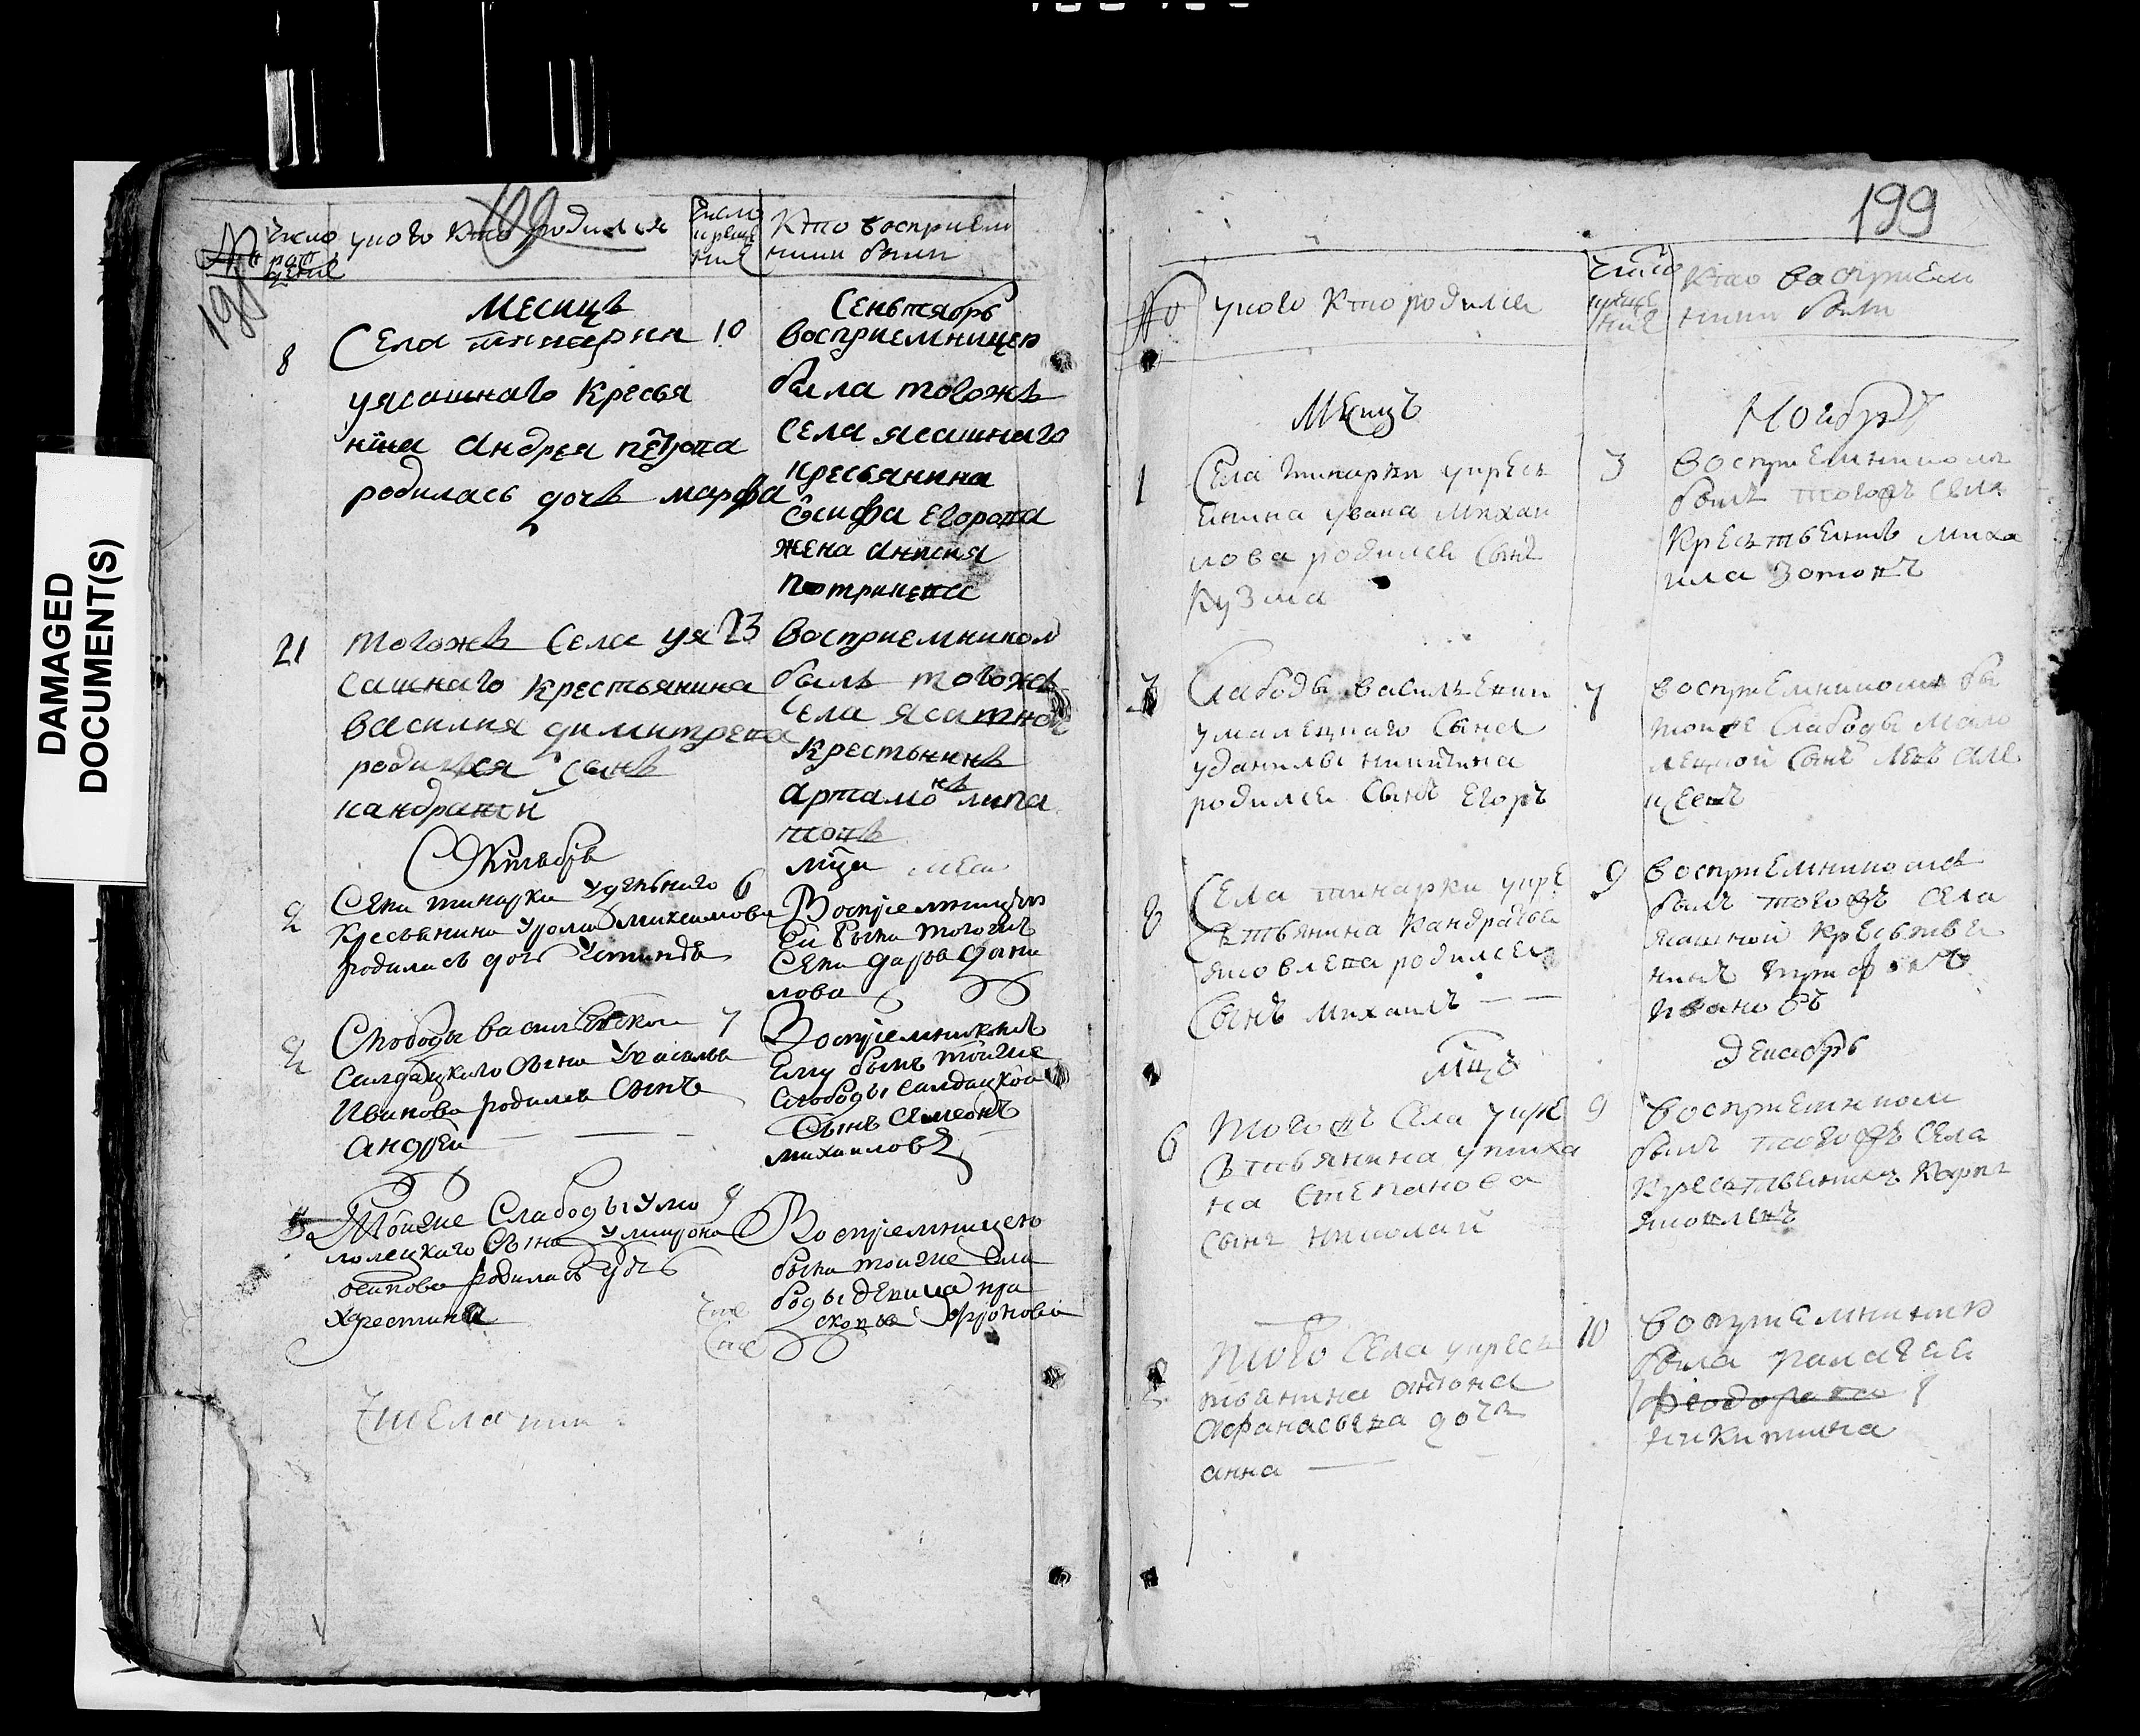 DAMAGED
DOCUMENT(S)
№
число
рож
дение
у кого кто родился
число
креще
ние
Кто восприем
ники были
Месицъ
Сеньтябрь
8
Села тинарки
уясашнаго кресья
нина андрея петрова
родилась дочь марфа
10
восприемницею
была тогожъ
села ясашнаго
кресьянина
осифа егорова
жена
21
тогожъ села уя
сашнаго крестьянина
василия димитрева
родился сынъ
кандратей
23
восприемником
былъ тогожъ
села ясашной
крестьнинъ
артамонъ липа
товъ
Октябрь
мца
2
Села тинарки удельнаго
кресьянина максимова
родилась дочь Устинья
6
Воспреемницею
ей была тогожъ
села дарья дани
лова
2
Слободы василевской
салдацкого сына Увасилья
Иванова родился сынъ
андрей
7
Воспреемникомъ
ему былъ тойже
слободы салдацкой
сынъ симеонъ
михаиловъ
5
Тойже Слабоды Ума
лолецкаго Сына Умирона
осипова родилась дочь
христина
9
Воспреемницею
была тойже сла
боды девица пра
сковья Софронова
199
№
у кого кто родился
число
креще
ние
Кто восприем
ники были
Месицъ
Ноябрь
1
Села тинарки укресь
янина увана михаи
лова родился сынъ
Кузма
3
восприемникомъ
былъ тогожъ села
Кресьтьенинъ миха
ила Зотовъ
3
Слабоды василевски
умалецкаго сына
уданилы никитина
родился сынъ егоръ
7
восприемникомъ бы
тойже слабоды мало
лецкой сынъ левъ але
ксеевъ
8
Села тинарки укре
сьтьянина Кандратья
яковлева родился
Сынъ михаилъ
9
восприемникомъ
былъ тогожъ села
ясашной кресьтье
нинъ
ивановъ
мцъ
декабрь
6
тогожъ села укре
сьтьянина
на Степанова
сынъ николай
9
восприемником
былъ тогожъ села
Кресьтьенинъ Карпъ
яковлевъ
8
того села укресь
тьянина антона
афанасьева дочь
анна
10
восприемницею
была палагея
никитина